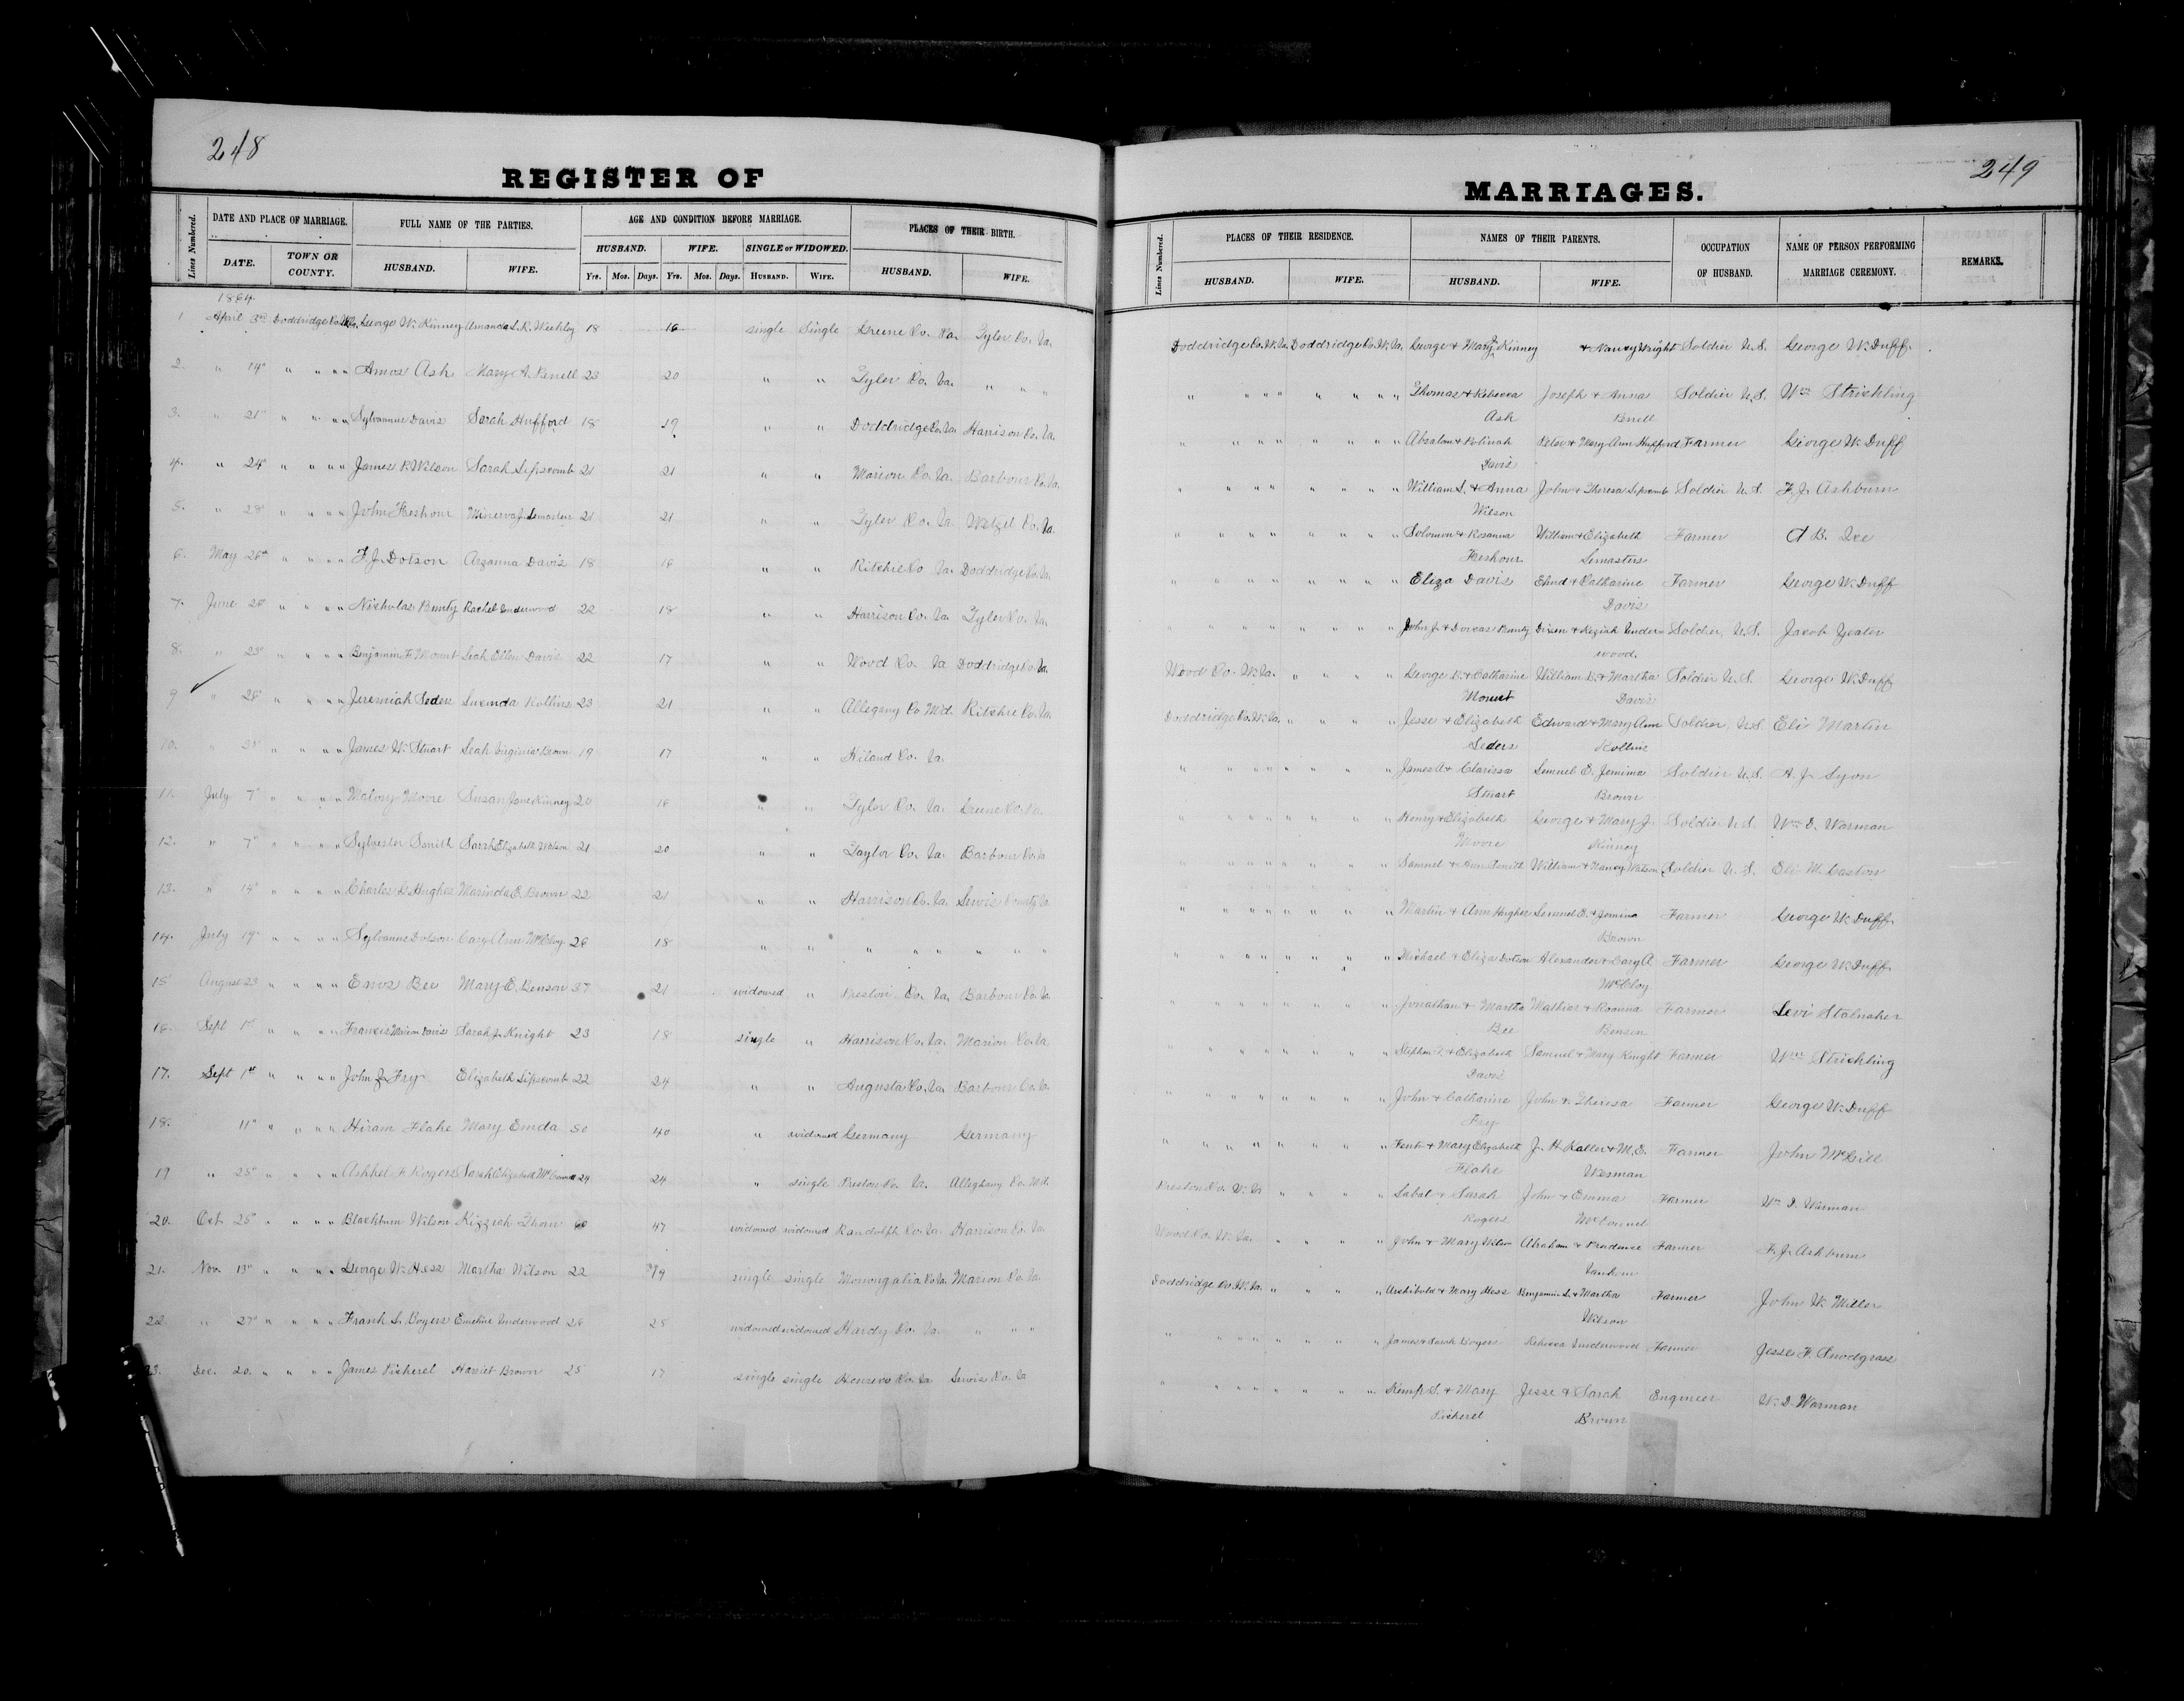 248
REGISTER OF
Lines Numbered.
DATE AND PLACE OF MARRIAGE.
FULL NAME OF THE PARTIES.
AGE AND CONDITION BEFORE MARRIAGE.
PLACES OF THEIR BIRTH.
DATE.
TOWN OR COUNTY.
HUSBAND.
WIFE.
HUSBAND.
WIFE.
SINGLE or WIDOWED.
HUSBAND.
WIFE.
Yrs. Mos. Days. Yrs. Mos. Days. HUSBAND. WIFE.
1864
1 April 3rd Doddridge Co. W.Va. George W. Kinney Amanda L. R. Weekley 18 16 single Single Greene Co. Pa. Tyler Co. Va.
2. " 14" " " " " Amos Ash Mary A. 23 20 " " Tyler Co. Va. " " "
3. " 21" " " " " Sylvannus Davis Sarah Hufford 18 19 " " Doddridge Co. Va. Harrison Co. Va.
4. " 24" " " " " James P. Wilson Sarah Lipscomb 21 21 " " Marion Co. Va. Barbour Co. Va.
5. " 28" " " " " John Heshour Minerva J. Lemasters 21 21 " " Tyler Co. Va. Wetzel Co. Va.
6. May 26" " " " " F. J. Dotson Arzanna Davis 18 16 " " Ritchie Co. Va. Doddridge Co. Va.
7. June " " " " Nicholas Bunty Rachel Underwood 22 18 " " Harrison Co. Va. Tyler Co. Va.
8. " 23" " " " " Benjamin F. Mount Leah Ellen Davis 22 17 " " Wood Co. Va. Doddridge Co. Va.
9 " 28" " " " " Jeremiah Seders Lucinda Kollins 23 21 " " Allegany Co. Md. Ritchie Co. Va.
10. " 28" " " " " James W. Stuart Leah Virginia Brown 19 17 " " Hiland Co. Va.
11. July 7" " " " " Malory Moore Susan Jane Kinney 20 16 " " Tyler Co. Va. Greene Co. Pa.
12. " 7" " " " " Sylvester Smith Sarah Elizabeth Watson 21 20 " " Taylor Co. Va. Barbour Co. Va.
13. " 14" " " " " Charles Hughes Marinda E. Brown 22 21 " " Harrison Co. Va. Lewis County Va.
14. July 19" " " " " Sylvanus Dotson Cary Ann McCloy 26 18 " " " " " " " "
15 August 23 " " " " Enos Bee Mary E. Benson 37 21 widowed " Preston Co. Va. Barbour Co. Va.
16. Sept 1st " " " " Francis Marion Davis Sarah J. Knight 23 18 single " Harrison Co. Va. Marion Co. Va.
17. Sept 1st " " " " John Fry Elizabeth Lipscomb 22 24 " " Augusta Co. Va. Barbour Co. Va.
18. 11" " " " " Hiram Flake Mary Emda 50 40 " widowed Germany Germany
19 " 25" " " " " Ashhel F. Rogers Sarah Elizabeth 24 24 " single Preston Co. Va. Alleghany Co. Md.
20. Oct 25" " " " " Blackburn Wilson Kizziah Thorn 60 47 widowed widowed Randolph Co. Va. Harrison Co. Va.
21. Nov. 13" " " " George W. Hess Martha Wilson 22 19 single single Monongalia Co. Va. Marion Co. Va.
22. " 27" " " " " Frank S. Boyers Emeline Underwood 26 25 widowed widowed Hardy Co. Va. " " "
23. Dec. 20. " " " " James Pickerel Harriet Brown 25 17 single single Henrico Co. Va. Lewis Co. Va.
249
MARRIAGES.
Lines Numbered.
PLACES OF THEIR RESIDENCE.
NAMES OF THEIR PARENTS.
OCCUPATION OF HUSBAND.
NAME OF PERSON PERFORMING MARRIAGE CEREMONY.
REMARKS.
HUSBAND.
WIFE.
HUSBAND.
WIFE.
Doddridge Co. W.Va. Doddridge Co. W.Va. George & Mary Kinney & Nancy Wright Soldier U.S. George W. Duff.
" " " " " " " " Thomas & Rebecca Joseph & Anna Soldier U.S. Wm Strickling
Ash
" " " " " " " " Absalom & Polinah Peter & Mary Ann Hufford Farmer George W. Duff
Davis
" " " " " " " " William S. & Anna John & Theresa Lipscomb Soldier U.S. F. J. Ashburn
Wilson
" " " " " " " " Solomon & Rosanna William & Elizabeth Farmer
Heshour Lemasters
" " " " " " " " Eliza Davis Ehud & Katharine Farmer George W. Duff
Davis
" " " " " " " " John J. & Dorcas Bunty & Keziah Under- Soldier, U.S. Jacob Yeater
wood.
Wood Co. W.Va. " " " " George & Catharine William & Martha Soldier U.S. George W. Duff
Mount Davis
Doddridge Co. W.Va. " " " " Jesse & Elizabeth Edward & Mary Ann Soldier, U.S. Eli Martin
Seders Kollins
" " " " " " " James A. & Clarissa Semuel E. Jemima Soldier U.S. A. J. Lyon
Stuart Brown
" " " " " " " Henry & Elizabeth George & Mary J. Soldier U.S. Wm D. Warman
Moore Kinney
" " " " " " " Samuel & Ann Smith William & Nancy Watson Soldier U.S. Eli M. Caston
" " " " " " " Martin & Ann Hughes Semuel E. & Jemima Farmer George W. Duff.
Brown
" " " " " " " Michael & Eliza Dotson Alexander & Cary A Farmer George W. Duff.
McCloy
" " " " " " " Jonathan & Martha Mathias & Roanna Farmer Levi Stalnaker
Bee Benson
" " " " " " " Stephen & Elizabeth Samuel & Mary Knight Farmer Wm Strickling
Davis
" " " " " " " John & Catharine John & Theresa Farmer George W. Duff
Fry
" " " " " " " & Mary Elizabeth J. H. Kaller & M. E. Farmer John McGill
Flake Wesman
Preston Co. W.Va " " " " Sabat & Sarah John & Emma Farmer Wm D. Warman
Rogers
Wood Co. W.Va. " " " " John & Mary Wilson Abraham & Prudence Farmer F. J. Ashburn
Doddridge Co. W.Va. " " " " Archibald & Mary Hess Benjamin S. & Martha Farmer John W. Miller
Wilson
" " " " " " " James & Sarah Boyers Rebecca Underwood Farmer Jesse F. Snodgrass
" " " " " " " Kemp S. & Mary Jesse & Sarah Engineer W. D. Warman
Pickerel Brown